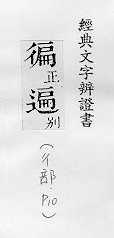 經典文字辨證書
徧正遍別
(彳部·P10)